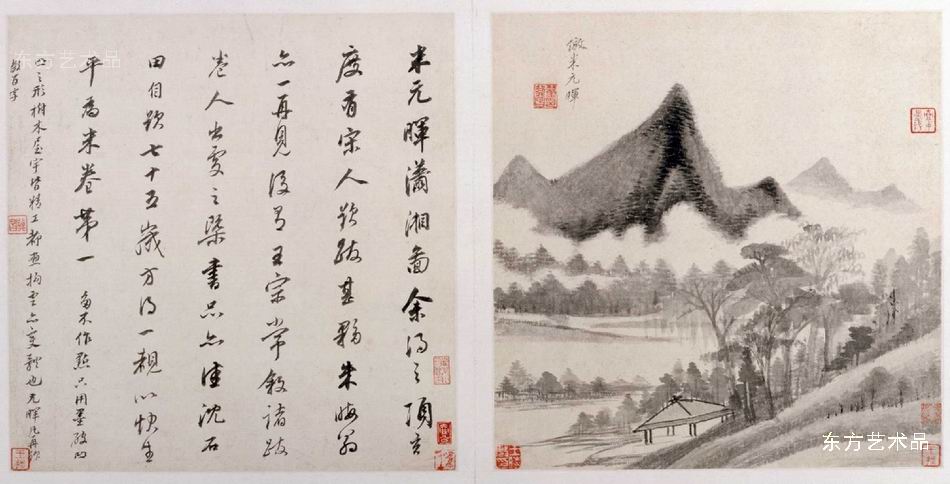 倣米元暉
米元暉瀟湘圖余得之項玄
度有宋人題跋甚夥朱晦翁
亦一再見後有王宗常敘諸跋
人出處之槩書品亦佳沈石
田自題七十五歲方得一觀以快生
平為米卷第一 畫不作點只用墨破凹
凸之形樹木屋宇皆精工都亦变也元暉凡再跋
數百字
东方艺术品
东方艺术品